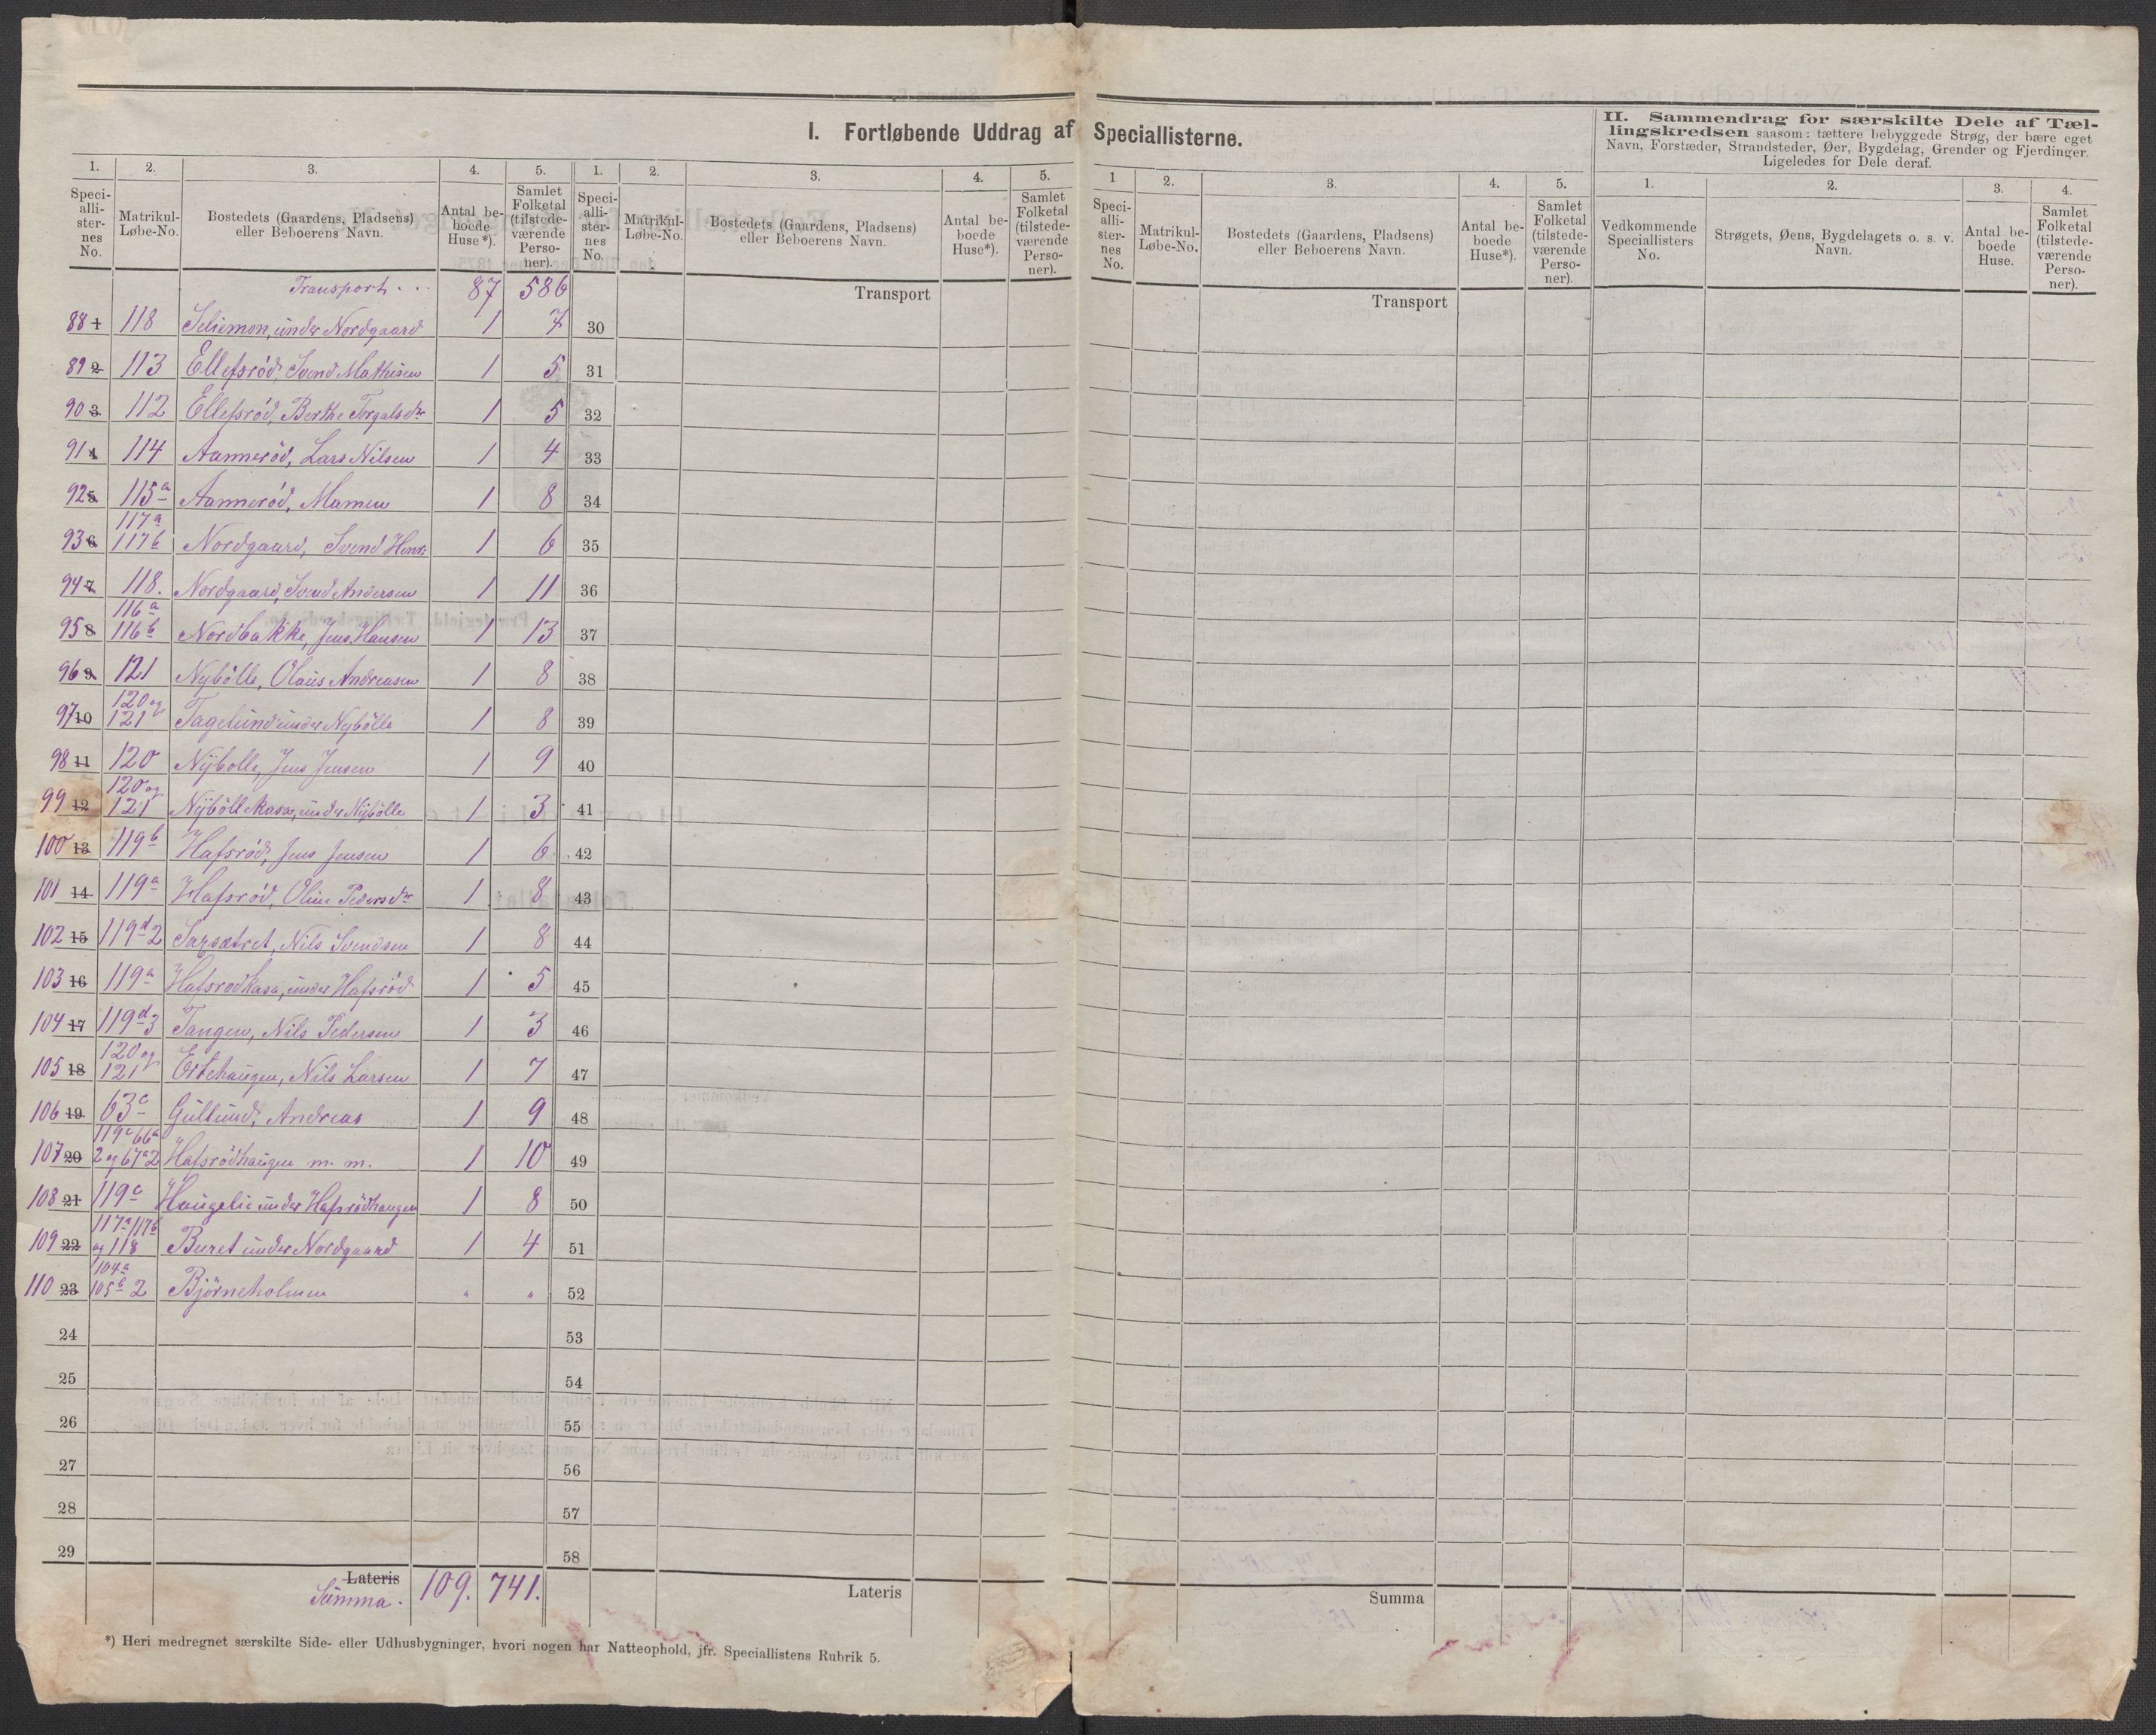 I. Fortløbende Uddrag af Speciallisterne.
II. Sammendrag for særskilte Dele af Tæl-
lingskredsen saasom: tættere bebyggede Strøg, der bære eget
Navn, Forstæder, Strandsteder, Øer, Bygdelag, Grender og Fjerdinger.
Ligeledes for Dele deraf.
1. 2. 3. 4. 5. 1. 2. 3. 4. 5. 1 2. 3. 4. 5. 1. 2. 3. 4.
Speci-alli-ster-nes No. Matrikul-Løbe-No. Bostedets (Gaardens, Pladsens) eller Beboerens Navn. Antal be-boede Huse*). Samlet Folketal (tilstede-værende Perso-ner).
Speci-alli-ster-nes No. Matrikul-Løbe-No. Bostedets (Gaardens, Pladsens) eller Beboerens Navn. Antal be-boede Huse*). Samlet Folketal (tilstede-værende Perso-ner).
Speci-alli-ster-nes No. Matrikul-Løbe-No. Bostedets (Gaardens, Pladsens) eller Beboerens Navn. Antal be-boede Huse*). Samlet Folketal (tilstede-værende Perso-ner).
Vedkommende Speciallisters No. Strøgets, Øens, Bygdelagets o. s. v. Navn. Antal be-boede Huse. Samlet Folketal (tilstede-værende Perso-ner).
Transport . . . 87 586 Transport Transport
88 1 118 under Nordgaard 1 7 30
89 2 113 Ellefsrød, Svend Mathisen 1 5 31
90 3 112 Ellefsrød, Berthe Torgalsdr 1 5 32
91 4 114 Aannerød, Lars Nilsen 1 4 33
92 5 115a Aannerød, Mamen 1 8 34
93 6 117a 117b Nordgaard, Svend Henr: 1 6 35
94 7 118. Nordgaard, Svend Andersen 1 11 36
95 8 116a 116b Nordbakke, Jens Hansen 1 13 37
96 9 121 Nybölle, Olaus Andreasen 1 8 38
97 10 120 og 121 Fagelund under Nybölle 1 8 39
98 11 120 Nybolle, Jens Jensen 1 9 40
99 12 120 og 121 Nyböllekasa, under Nybölle 1 3 41
100 13 119b Hafsrød, Jens Jensen 1 6 42
101 14 119a Hafsrød, Oline Pedersdr 1 8 43
102 15 119d2 Nils Svendsen 1 8 44
103 16 119a Hafsrødkasa, under Hafsrød 1 5 45
104 17 119d3 Tangen, Nils Pedersen 1 3 46
105 18 120 og 121 Ertehaugen, Nils Larsen 1 7 47
106 19 63c Gullund, Andreas 1 9 48
107 20 119c 66a 2 og 67a2 Hafsrødhaugen m. m. 1 10 49
108 21 119c Haugelie under Hafsrødhaugen 1 8 50
109 22 117a 117b og 118 Buret under Nordgaard 1 4 51
110 23 104a 105b 2 Björneholmen " " 52
24 53
25 54
26 55
27 56
28 57
29 58
Lateris
Summa. 109. 741. Lateris Summa
*) Heri medregnet særskilte Side- eller Udhusbygninger, hvori nogen har Natteophold, jfr. Speciallistens Rubrik 5.